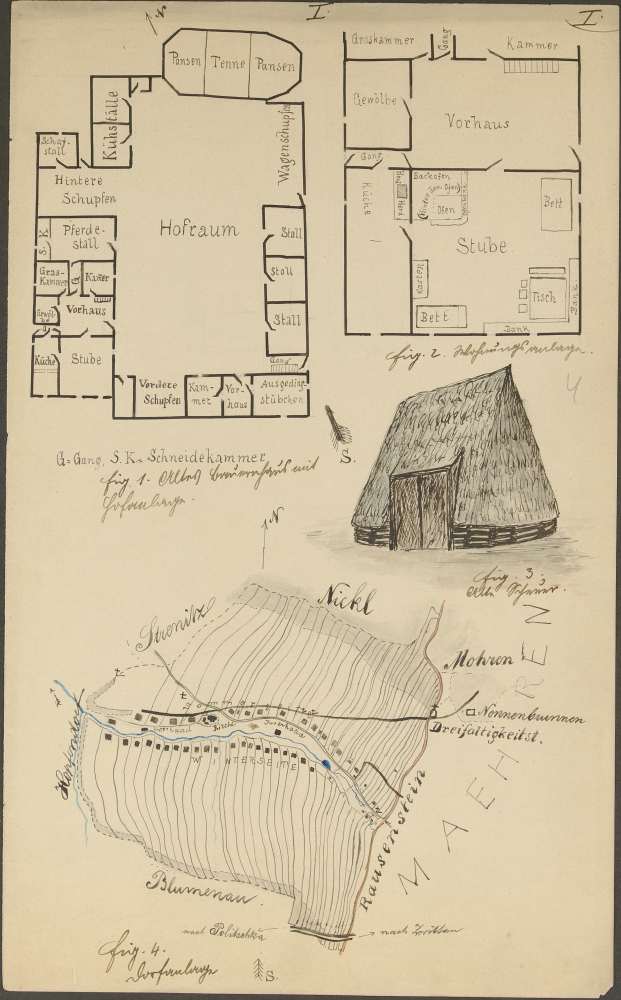 I.
I.
N
Pansen
Tenne
Pansen
Kühställe
Wagenschupfen
Schaf-
stall
Hintere
Schupfen
Hofraum
S. K.
Pferde-
stall
Stall
Stall
Stall
Gras-
Kammer
G.
Vorhaus
Küche
Stube
Gang
Vordere
Schupfen
Kam-
mer
Vor-
haus
Ausgeding-
stübchen
G = Gang, S. K = Schneidekammer
Fig 1. Altes Bauernhaus mit
Hofanlage.
S.
Graskammer
Gang
Kammer
Gewölbe
Vorhaus
Gang
Küche
Herd
Backofen
Ofen
Bett
Stube
Kasten
Tisch
Bank
Bett
Bank
Fig. 2. Wohnungsanlage.
4
Fig. 3.
Alte Scheuer.
N
Nickl
Strenitz
Mohren
Nonnenbrunnen
Dreifaltigkeitst.
WINTERSEITE
Rausenstein
MAEHREN
Blumenau.
nach Politschka
nach Zwittau
Fig. 4.
Dorfanlage
S.